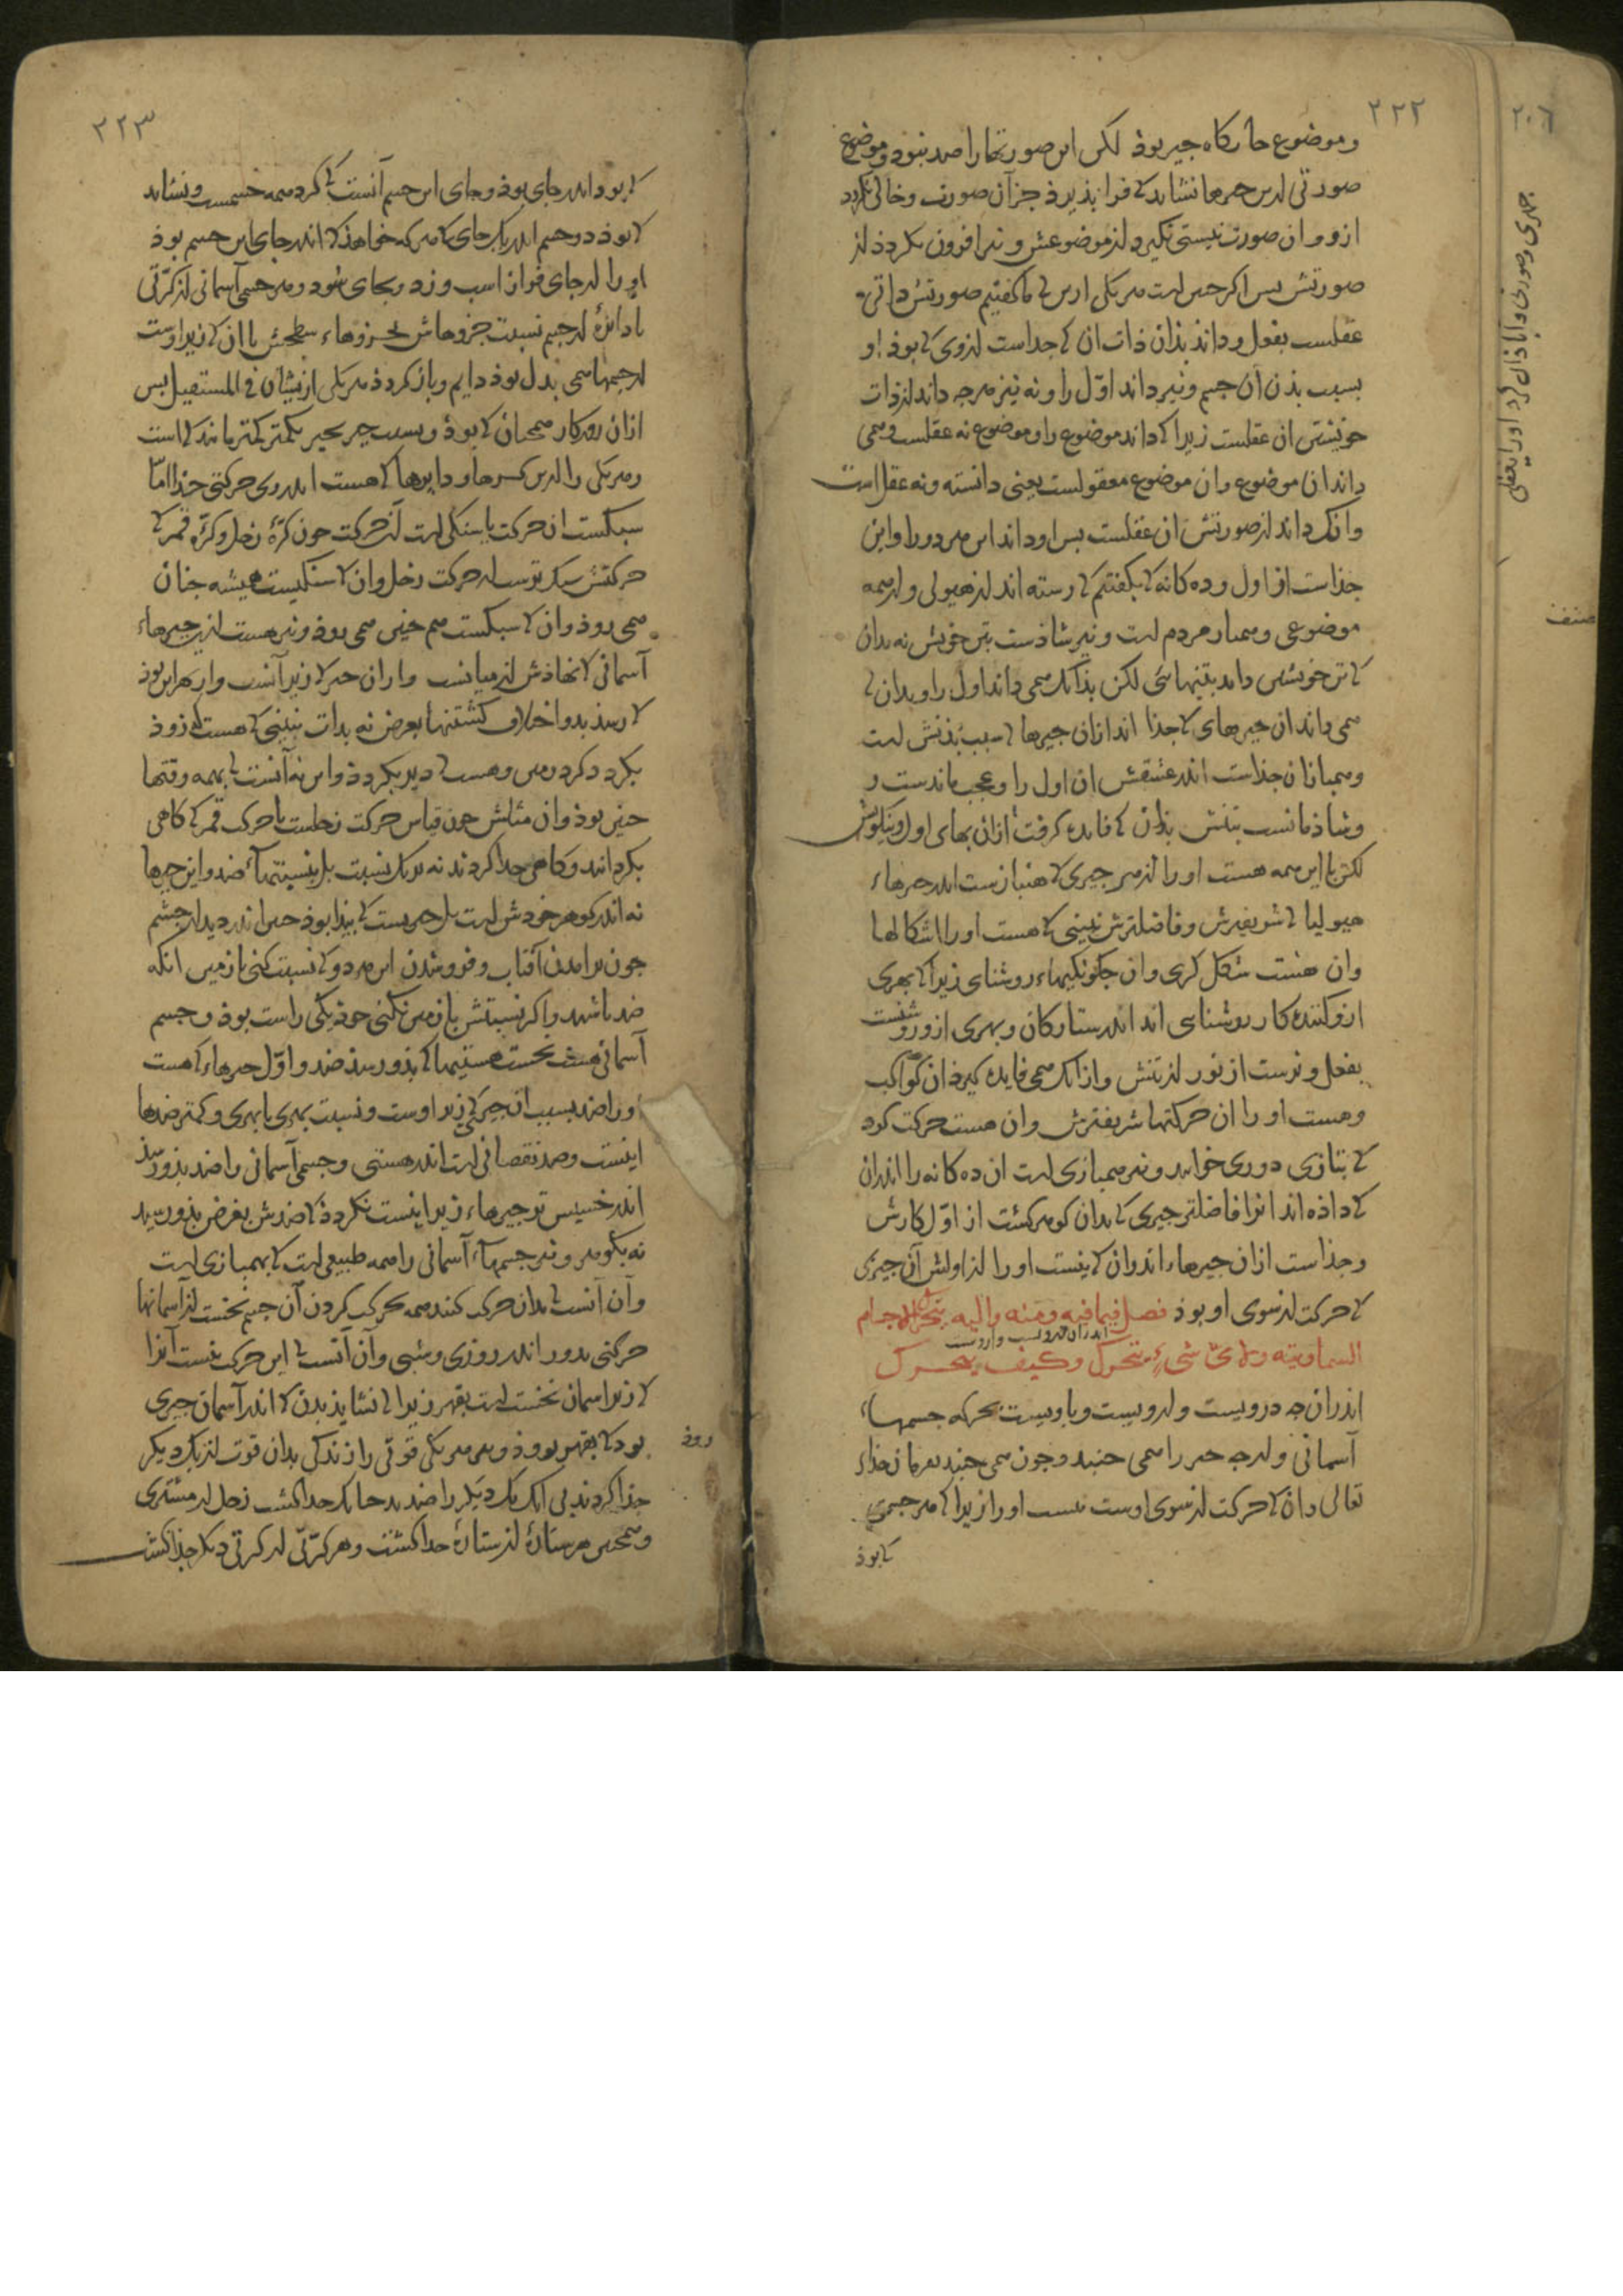 ٢٢٢
وموضوع جایگاه جیز بوذ لکن این صورتها را ضد نبود وموضوع
صورتی ازین جیزها نشاید کی فرا بذیرذ جز آن صورت وخالی نکردد
ازو وان صورت نیستی نکیرد از موضوعش ونیز افزون نکردذ از
صورتش بس اکر جنین است هر یکی ازین کی ما کفتیم صورتش داتی
عقلست بفعل وداند بذان ذات ان کی جداست ازوی کی بوذ او
بسبب بذن آن جسم ونیز داند اوّل را ونه نیز هرجه داند از ذات
خویشتن ان عقلست زیرا کی داند موضوع را وموضوع نه عقلست وهمی
داند ان موضوع وان موضوع معقولست یعنی دانسته ونه عقل است
وانک داند از صورتش ان عقلست بس او داند این هر دو را واین
جذاست از اول وده کانه کی بکفتیم کی رسته اند از هیولی واز همه
موضوعی وهمباز مردم است ونیز شاذست بتن خویش نه بدان
کی تن خویش داند بتنهائی لکن بذانک همی داند اول را وبدان کی
همی داند ان جیزهای کی جذا اند ازان جیزها کی سبب بذنش است
وهمباز ان جذاست اندر عشقش ان اول را وعجب ماندست
وشاذمانست بتنش بذان کی فایده کرفت ازان بهای اول ونیکوئش
لکن با این همه هست او را از هر جیزی کی هنبازست اندر جیزهاء
هیولیا کی شریفترش وفاضلترش نبینی کی هست او را اشکالها
وان هست شکل کری وان جکونکیهاء روشنای زیرا کی بهری
ازو کننده کار روشنایی اند اندر ستارکان وبهری ازو روشنست
بفعل وبرست از نور از تنش وازانک همی فایده کیرذ ان کواکب
وهست او را ان حرکتها شریفترش وان هست حرکت کود
کی بتازی دوری خوانند ونیز همبازی است ان ده کانه را اندران
کی داذه اند انرا فاضلتر جیزی کی بدان کوهر کشت از اوّل کارش
وجذاست ازان جیزهاء اند وان کی نیست او را از اولش آن جیزی
کی حرکت از سوی او بوذ فصل فیما فیه ومنه والیه یتحرک الاجرام
السماویّة ولایّ شیءٍ یتحرّک وکیف یتحرک
اندران جه درویست وازویست وباویست بحرکه جسمهاء
آسمانی واز جه جیز را همی جنبد وجون همی جنبد بفرمان خذاء
تعالی وان کی حرکت از سوی اوست نیست او را زیرا کی هر جسمی
کی بوذ
٢٢٣
کی بود اندر جای بوذ وجای این جسم آنست کی کرد همه جسمست ونشاید
کی بوذ دو جسم اندر یک جای تا هر که خواهذ کی اندر جای این جسم بوذ
او را از جای فراز اسب وزد وبجای شود وهر جسمی آسمانی از کرّتی
یا دائرۀ از جسم نسبت جزوهاش بجزوهاء سطحش با ان کی زیر اوست
از جسمها همی بدل بوذ دایم وباز کردذ هر یکی از یشان فی المستقبل بس
ازان روزکار همجنان کی بوذ وبسبب جیز بجیز بکمتر کمتر مانند کی است
وهر یکی را ازین کرّها ودایرها کی هست اندر وی حرکتی جذا امّا
سبکست ان حرکت یا سنکی است آن حرکت جون کرّۀ زحل وکرّۀ قمر کی
حرکتش سبک ترست از حرکت زحل وان کی سنکیست همیشه جنان
همی روذ وان کی سبکست هم جنین همی روذ ونیز هست ازین جیزهاء
آسمانی کی نهاذش از میانست وازان جیز کی زیر آنست واز بهر این بوذ
کی رسد بدو اختلاف کشتنها بعرض نه بذات نبینی کی هست کی زوذ
بکردد کرد زمین وهست کی دیر بکردذ واین نه آنست کی بهمه وقتها
جنین بوذ وان مثلش جون قیاس حرکت زحلست با حرکت قمر کی کاهی
بکرد آیند وکاهی جدا کردند نه بر یک نسبت بل بنسبتهاء ضد واین جیزها
نه اندر کوهر خودش است بل جیزیست کی بیذا بوذ جیز اندر دیدار جشم
جون برامدن آفتاب وفروشدن این هر دو کی نسبت کنی با زمین انکه
ضد باشند واکر نسبتش با زمین نکنی خوذ یکی راست بوذ وجسم
آسمانی هست نخست هستیها کی بذو رسذ ضد واوّل جیزهاء کی هست
او را ضد بسبب ان جیز کی زیر اوست ونسبت بهری با بهری وکمتر ضدها
اینست وضد نقصانی است اندر هستی وجسمی آسمانی را ضد بذو رسذ
اندر خسیس تر جیزهاء زیرا اینست نکردذ کی ضدش بغرض بذو رسید
نه بکوهر ونیز جسمهاء آسمانی را همه طبیعی است کی بهمبازی است
وآن آنست کی بدان حرکت کنند همه بحرکت کردن آن جسم نخست از آسمانها
حرکتی بدور اندر روزی وشبی وآن آنست کی این حرکت نیست آنرا
کی زیر اسمان نخست است بقهر زیرا کی نشاید بذن کی اندر آسمان جیزی
بود کی بقهر بوذ ونیز هر یکی قوتی را زندکی بدان قوت از یک دیکر
روذ
جذا کردند بی انک یک دیکر را ضد بد جنانک جدا کشت زحل از مشتری
وهمجنین هر ستارۀ از ستارۀ جدا کشت وهر کرّتی از کرتی دیکر جذا کشت
٢٠٦
صنف